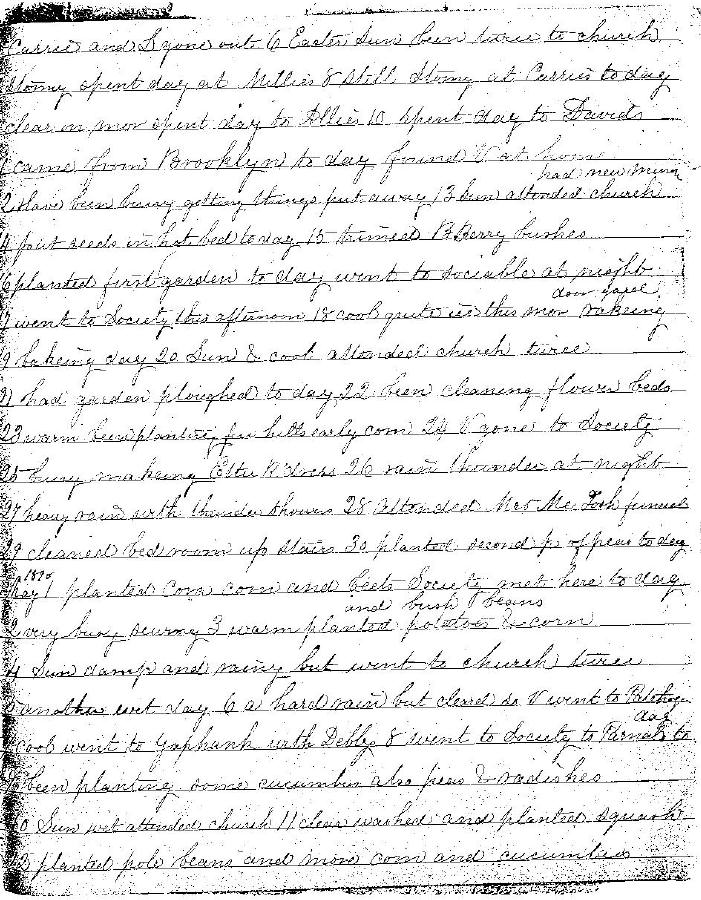 Carrie and D gone out 6 Easter Sun been twice to church
Homy spent day at Millies 8 still Homy at Carries to day
clear in mor spent day to Allies 10 spent day to Davids
came from Brooklyn to day found V at home
had new minis
2 have been buisy getting things put away 13 been attended church
4 put seeds in hot bed to day 15 trimed B Berry bushes
16 planted first garden to day went to sociable at night
door yard
17 went to Society this afternoon 18 cool quite ice this mor rakeing
19 bakeing day 20 Sun & cool attended church twice
21 had garden ploughed to day 22 been cleaning flower beds
23 warm been planting few hills early corn 24 V gone to Society
25 busy makeing Etta R dress 26 rain thunder at night
27 heavy rain with thunder showers 28 attended Mrs Mc funeral
29 cleaned bed room up stairs 30 planted second p of peas to day
May 1 planted corn and beets Society met here to day
and bush beans
2 very busy sewing 3 warm planted potatoes & corn
4 Sun damp and rainy but went to church twice
5 another wet day 6 a hard rain but cleard so V went to Patchogue
day
7 cool went to Yaphank with Debby 8 went to Society to Parnals to
been planting some cucumber also peas & radishes
10 Sun wet attended church 11 clear washed and planted squash
13 planted pole beans and more corn and cucumbers